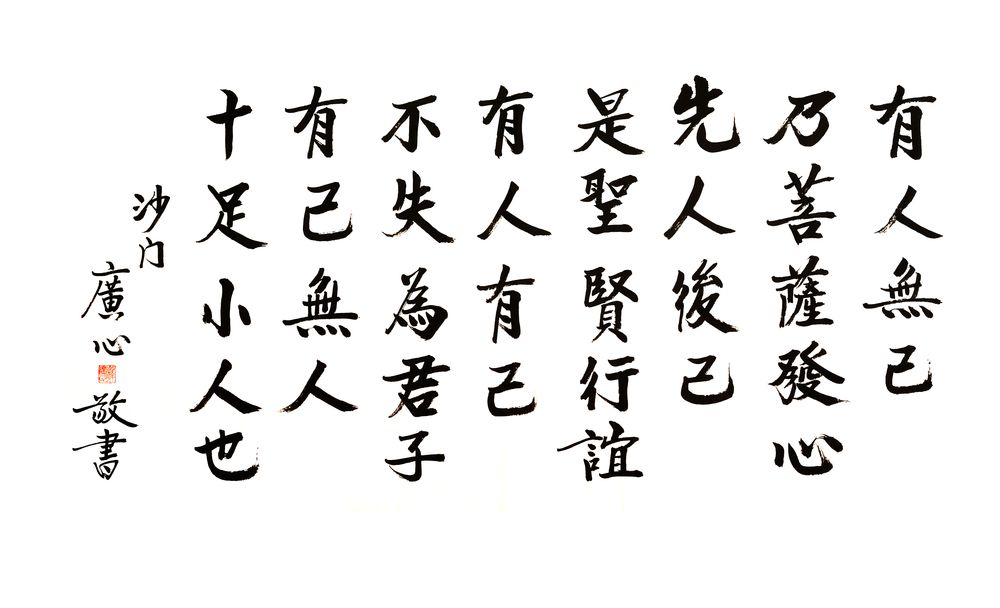 有人無己
乃菩薩發心
先人後己
是聖賢行誼
有人有己
不失為君子
有己無人
十足小人也
沙门
廣心敬書